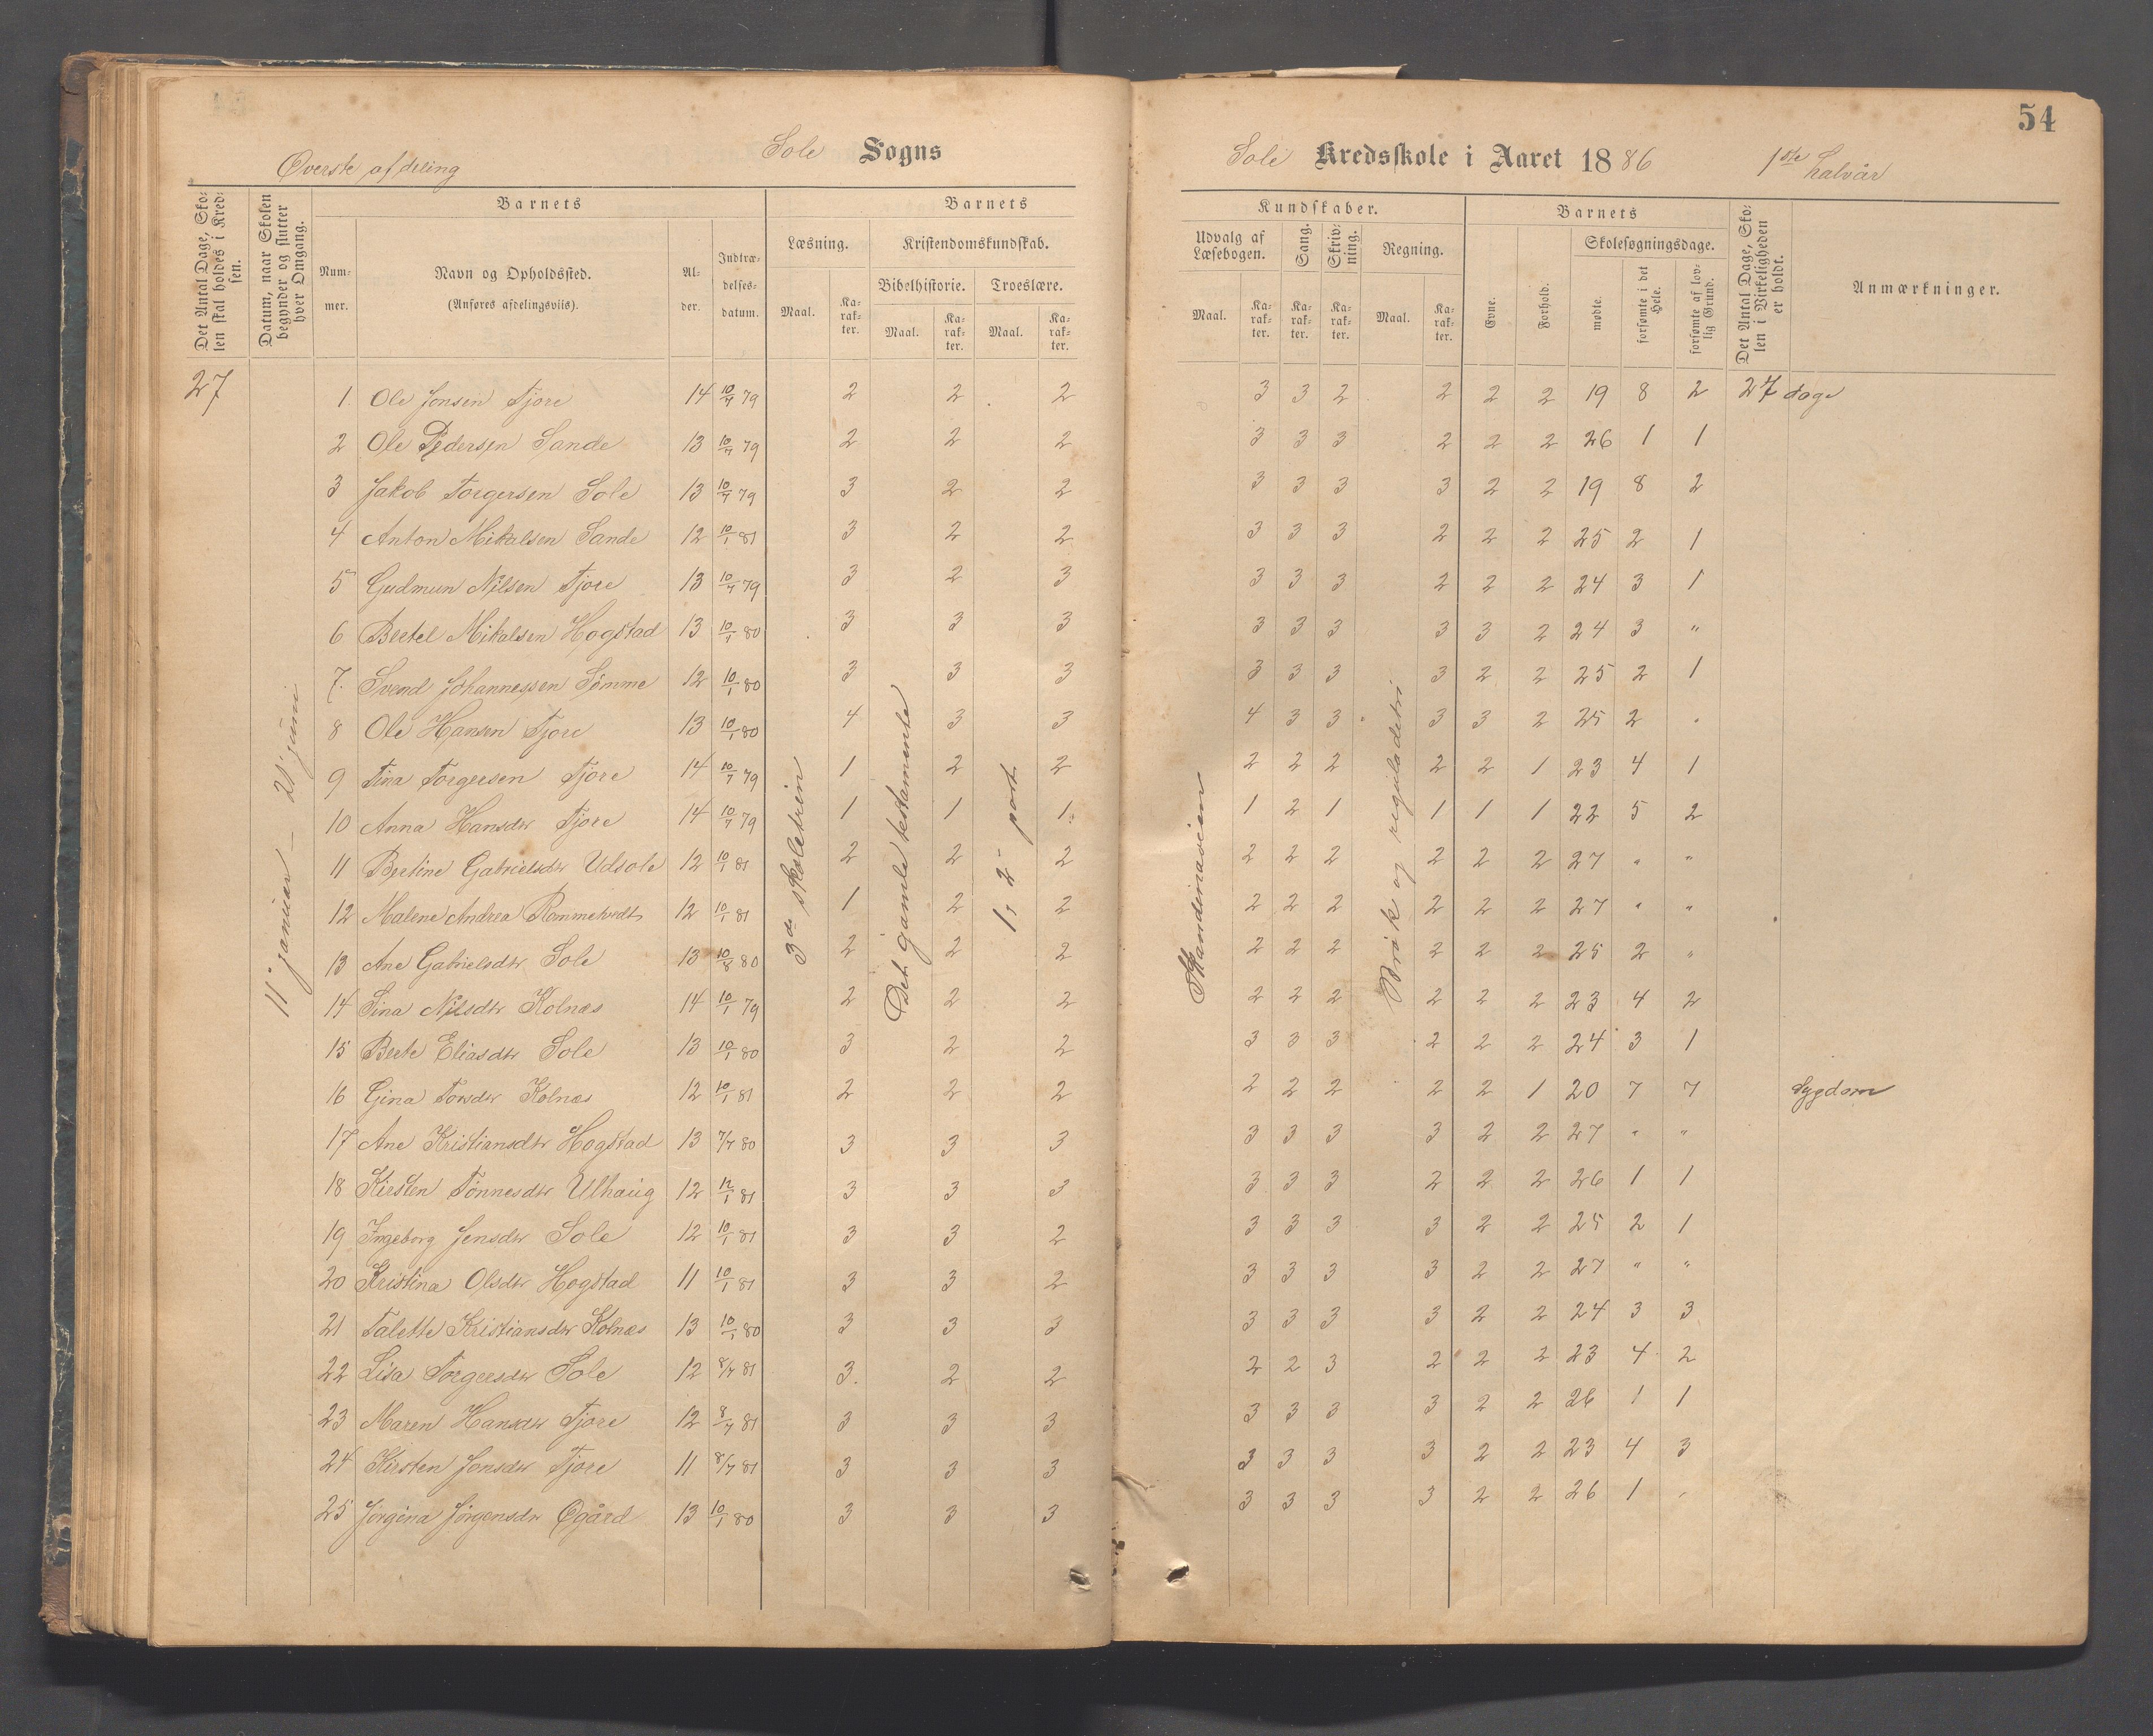 54
Sole Sogns
Sole Kredsskole i Aaret 1886 1ste halvår
Øverste afdeling
Det Antal Dage, Skolen skal holdes i Kredsen.
Datum, naar Skolen begynder og slutter hver Omgang.
Barnets
Nummer.
Navn og Opholdssted.
(Anføres afdelingsviis).
Alder.
Indtrædelsesdatum.
Barnets
Læsning.
Maal.
Karakter.
Kristendomskundskab.
Bibelhistorie.
Troeslære.
Maal.
Karakter.
Maal.
Karakter.
Kundskaber.
Udvalg af Læsebogen.
Maal.
Karakter.
Sang.
Karakter.
Skrivning.
Karakter.
Regning.
Maal.
Karakter.
Barnets
Evne.
Forhold.
Skolesøgningsdage.
mødte.
forsømte i det Hele.
forsømte af lovlig Grund.
Det Antal Dage, Skolen i Virkeligheden er holdt.
Anmærkninger.
27
11' januar – 21' juni
3de skoletrin
Det gamle testamente
1, 2 part
Skandinavien
Brøk og reguladetri
1 Ole Jonsen Tjore 14 10/7 79 2 2 2 3 3 2 2 2 2 19 8 2 27 dage
2 Ole Pedersen Sande 13 10/7 79 2 2 2 3 3 3 2 2 2 26 1 1
3 Jakob Torgersen Sole 13 10/7 79 3 2 2 3 3 3 3 2 2 19 8 2
4 Anton Mikalsen Sande 12 10/1 81 3 2 2 3 3 3 2 2 2 25 2 1
5 Gudmun Nilsen Tjore 13 10/7 79 3 2 3 3 3 3 2 2 2 24 3 1
6 Bertel Mikalsen Hogstad 13 10/1 80 3 3 3 3 3 3 3 3 2 24 3 "
7. Svend Johannessen Sömme 12 10/1 80 3 3 3 3 3 3 3 2 2 25 2 1
8 Ole Hansen Tjore 13 10/1 80 4 3 3 4 3 3 3 3 2 25 2 "
9 Tina Torgersen Tjore 14 10/7 79 1 2 2 2 2 2 2 2 1 23 4 1
10 Anna Hansdtr Tjore 14 10/7 79 1 1 1 1 2 1 1 1 1 22 5 2
11 Bertine Gabrielsdtr Udsole 12 10/1 81 2 2 2 2 2 2 2 2 2 27 " "
12 Malene Andrea Rommetvedt 12 10/1 81 1 2 2 2 2 2 2 2 2 27 " "
13 Ane Gabrielsdtr Sole 13 10/8 80 2 2 2 2 2 2 2 2 2 25 2 "
14 Sina Nilsdtr Kolnæs 14 10/1 79 2 2 2 2 2 2 2 2 2 23 4 2
15 Berte Eliasdtr Sole 13 10/1 80 3 2 2 3 3 3 2 2 2 24 3 1
16 Gina Torsdtr Kolnæs 12 10/1 81 2 2 2 2 2 2 2 2 1 20 7 7 Sygdom
17 Ane Kristiansdtr Hogstad 13 7/7 80 3 3 3 3 3 3 3 2 2 27 " "
18 Kirsten Tönnesdtr Ulhaug 12 12/1 81 3 3 3 3 3 3 2 2 2 26 1 1
19 Ingeborg Jensdtr Sole 12 10/1 81 3 3 2 3 3 3 3 2 2 25 2 1
20 Kristina Olsdtr Hogstad 11 10/1 81 3 3 2 3 3 3 3 2 2 27 " "
21 Talette Kristiansdtr Kolnæs 13 10/1 80 3 3 3 3 3 3 3 2 2 24 3 3
22 Lisa Torgersdtr Sole 12 8/7 81 3. 2 2 2 2 3 2 2 2 23 4 2
23 Maren Hansdtr Tjore 12 8/7 81 3 3 3 3 3 3 3 2 2 26 1 1
24 Kirsten Jonsdtr Tjore 11 8/7 81 3 3 3 3 3 3 3 2 2 23 4 3
25 Jörgina Jörgensdtr Øgård 13 10/1 80 3 3 3 3 3 3 3 2 2 26 1 "